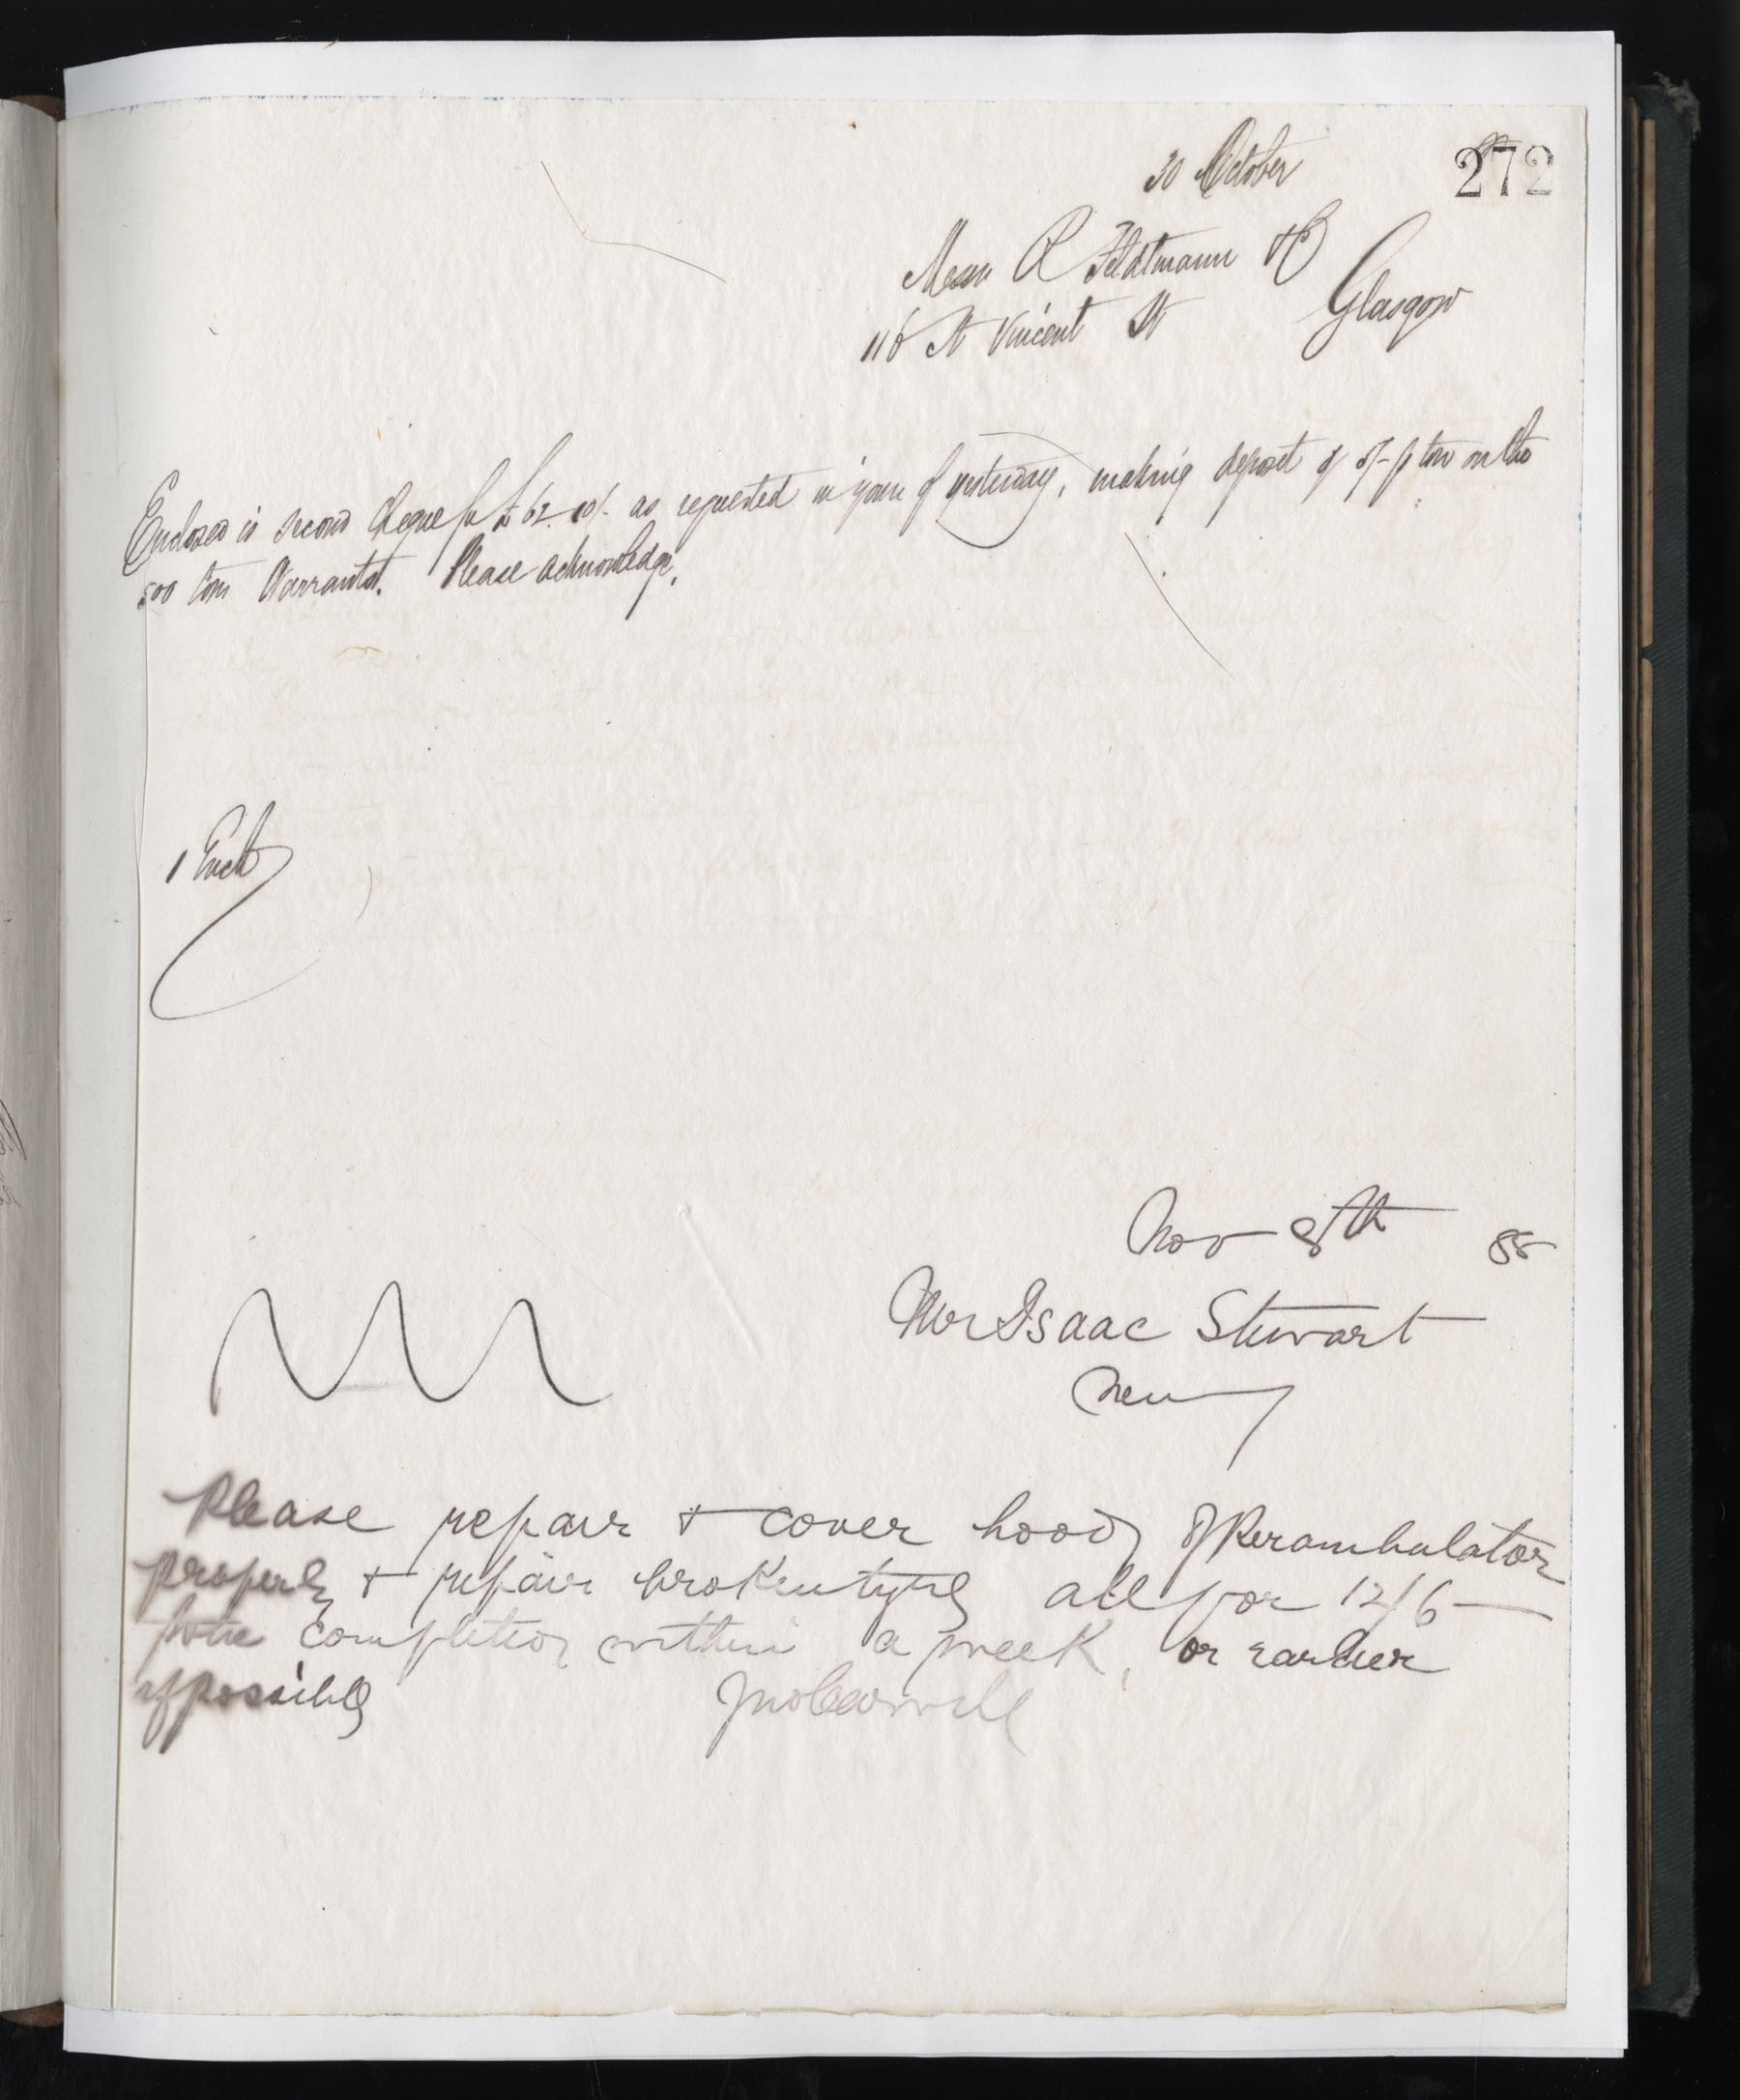 272
30 October
Messrs R Feldtmann & Co
116 St Vincent St Glasgow
Enclosed is second cheque for £62.10/- as requested in yours of yesterday, making deposit of 5/- p ton on the
500 tons Warrants. Please acknowledge.
1 Encl
Nov 8th 88
Mr Isaac Stewart
Newry
Please repair & cover hood of Perambulator
properly & repair broken tyre all for 12/6
completion within a week, or earlier
if possible
Jno Carvill